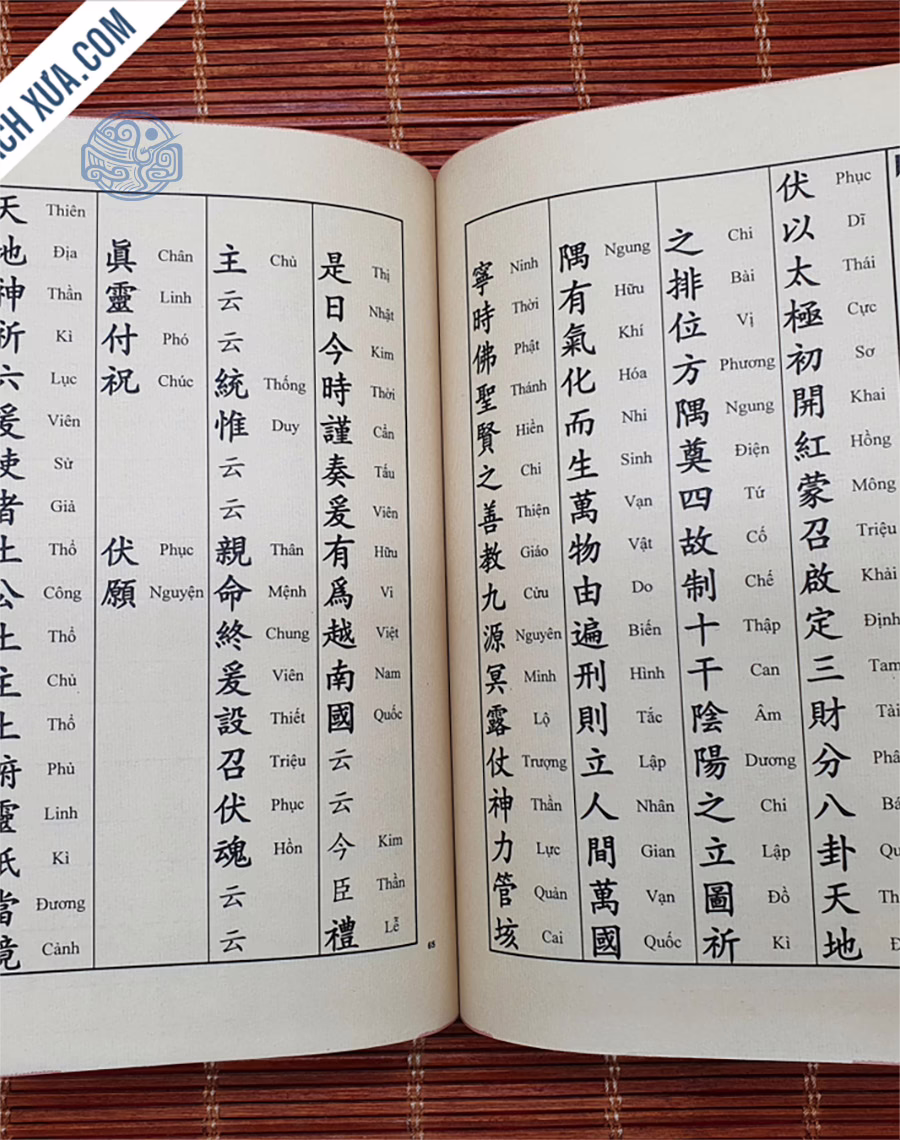 XƯA.COM
伏以太極初開紅蒙召啟定三財分八卦天地
Phục Dĩ Thái Cực Sơ Khai Hồng Mông Triệu Khải Định Tam Tài
之排位方隅奠四故制十干陰陽之立圖祈
Chi Bài Vị Phương Ngung Điện Tứ Cố Chế Thập Can Âm Dương Chi Lập Đồ Kì
隅有氣化而生萬物由遍刑則立人間萬國
Ngung Hữu Khí Hóa Nhi Sinh Vạn Vật Do Biến Hình Tắc Lập Nhân Gian Vạn Quốc
寧時佛聖賢之善教九源冥露仗神力管垓
Ninh Thời Phật Thánh Hiền Chi Thiện Giáo Cửu Nguyên Minh Lộ Trượng Thần Lực Quản Cai
是日今時謹奏爰有爲越南國云云今臣禮
Thị Nhật Kim Thời Cẩn Tấu Viên Hữu Vi Việt Nam Quốc Kim Thần Lễ
主云云統惟云云親命終爰設召伏魂云云
Chủ Thống Duy Thân Mệnh Chung Viên Thiết Triệu Phục Hồn
眞靈付祝 伏願
Chân Linh Phó Chúc Phục Nguyện
天地神祈六爰使者土公土主土府靈祇當境
Thiên Địa Thần Kì Lục Viên Sử Giả Thổ Công Thổ Chủ Thổ Phủ Linh Kì Đương Cảnh
65